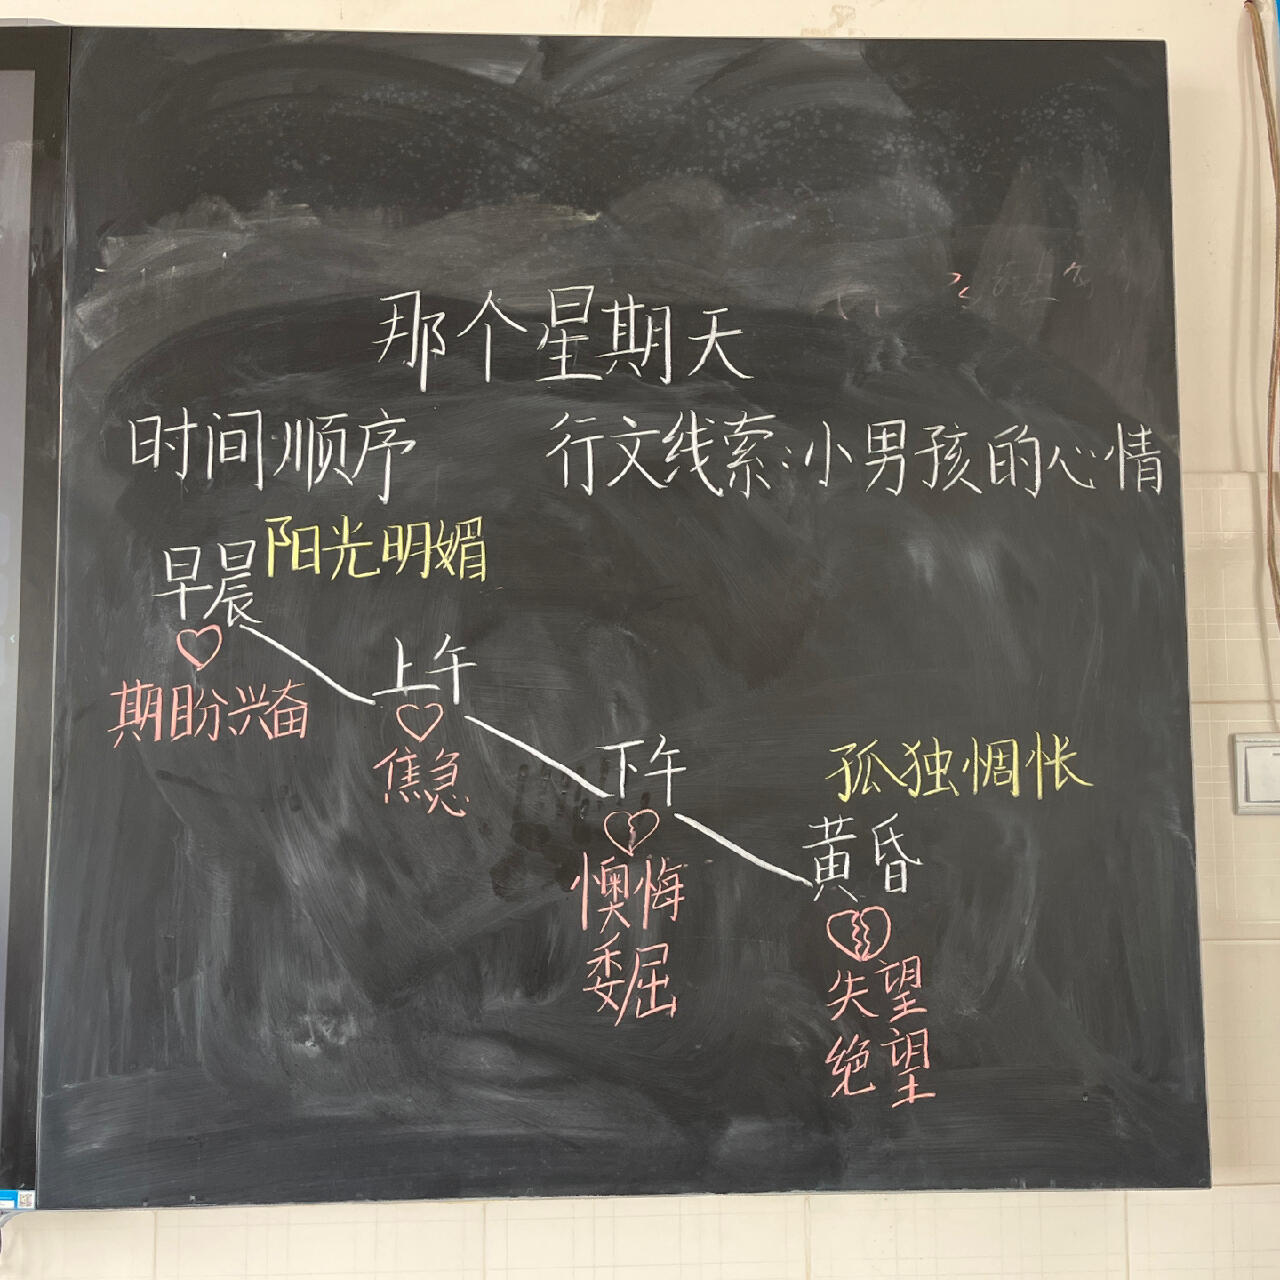 那个星期天
时间顺序 行文线索:小男孩的心情
早晨 阳光明媚
期盼兴奋
上午
焦急
下午
懊悔
委屈
孤独惆怅
黄昏
失望
绝望